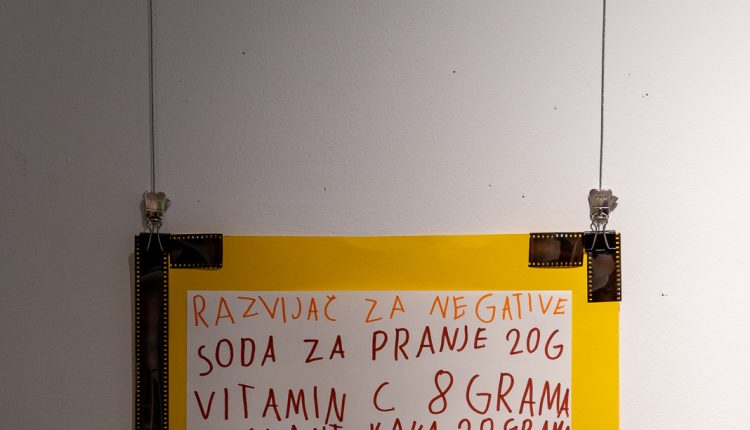 RAZVIJAČ ZA NEGATIVE
SODA ZA PRANJE 20G
VITAMIN C 8 GRAMA